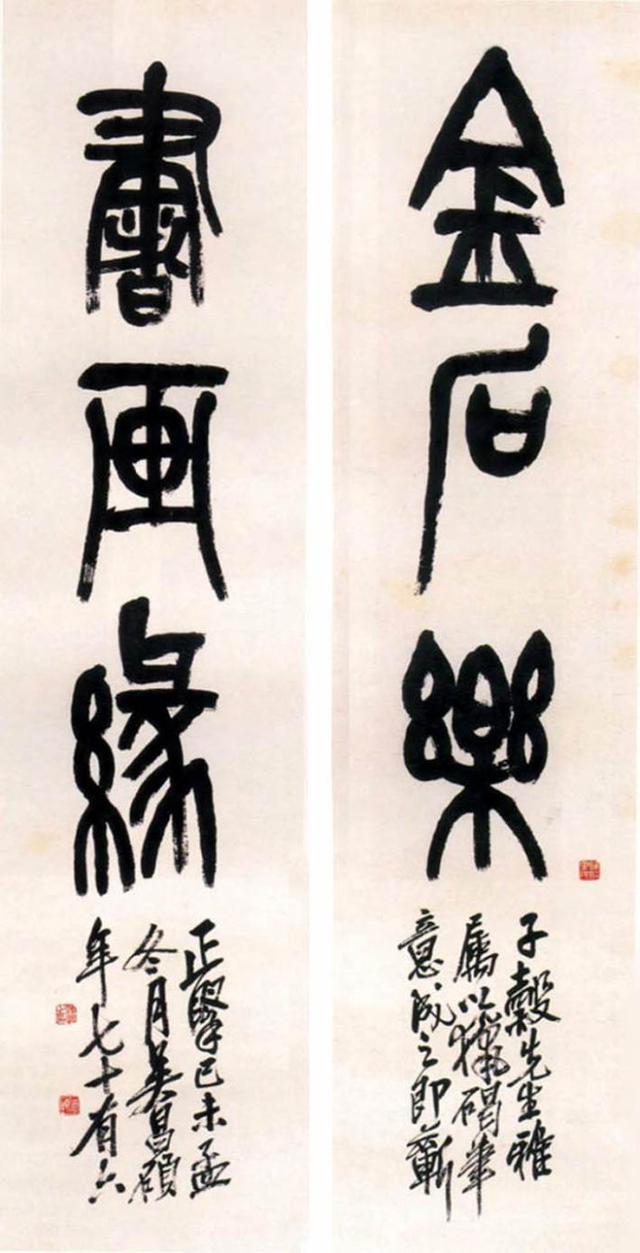 金石樂
子穀先生雅
屬以獵碣筆
意成之即蘄
書画緣
正擘己未孟
冬月吳昌碩
年七十有六